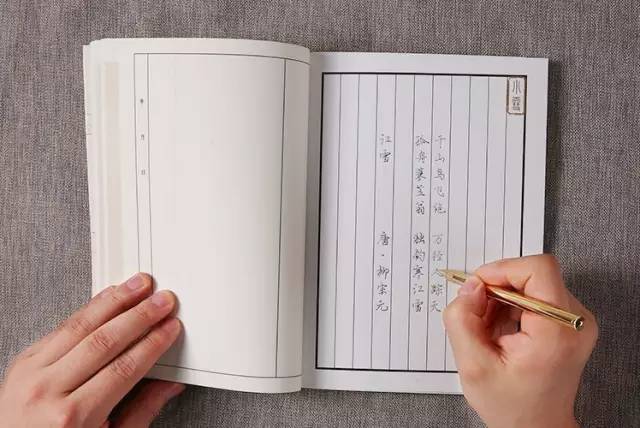 小雪
千山鸟飞绝 万径人踪灭
孤舟蓑笠翁 独钓寒江雪
江雪 唐·柳宗元
年 月 日